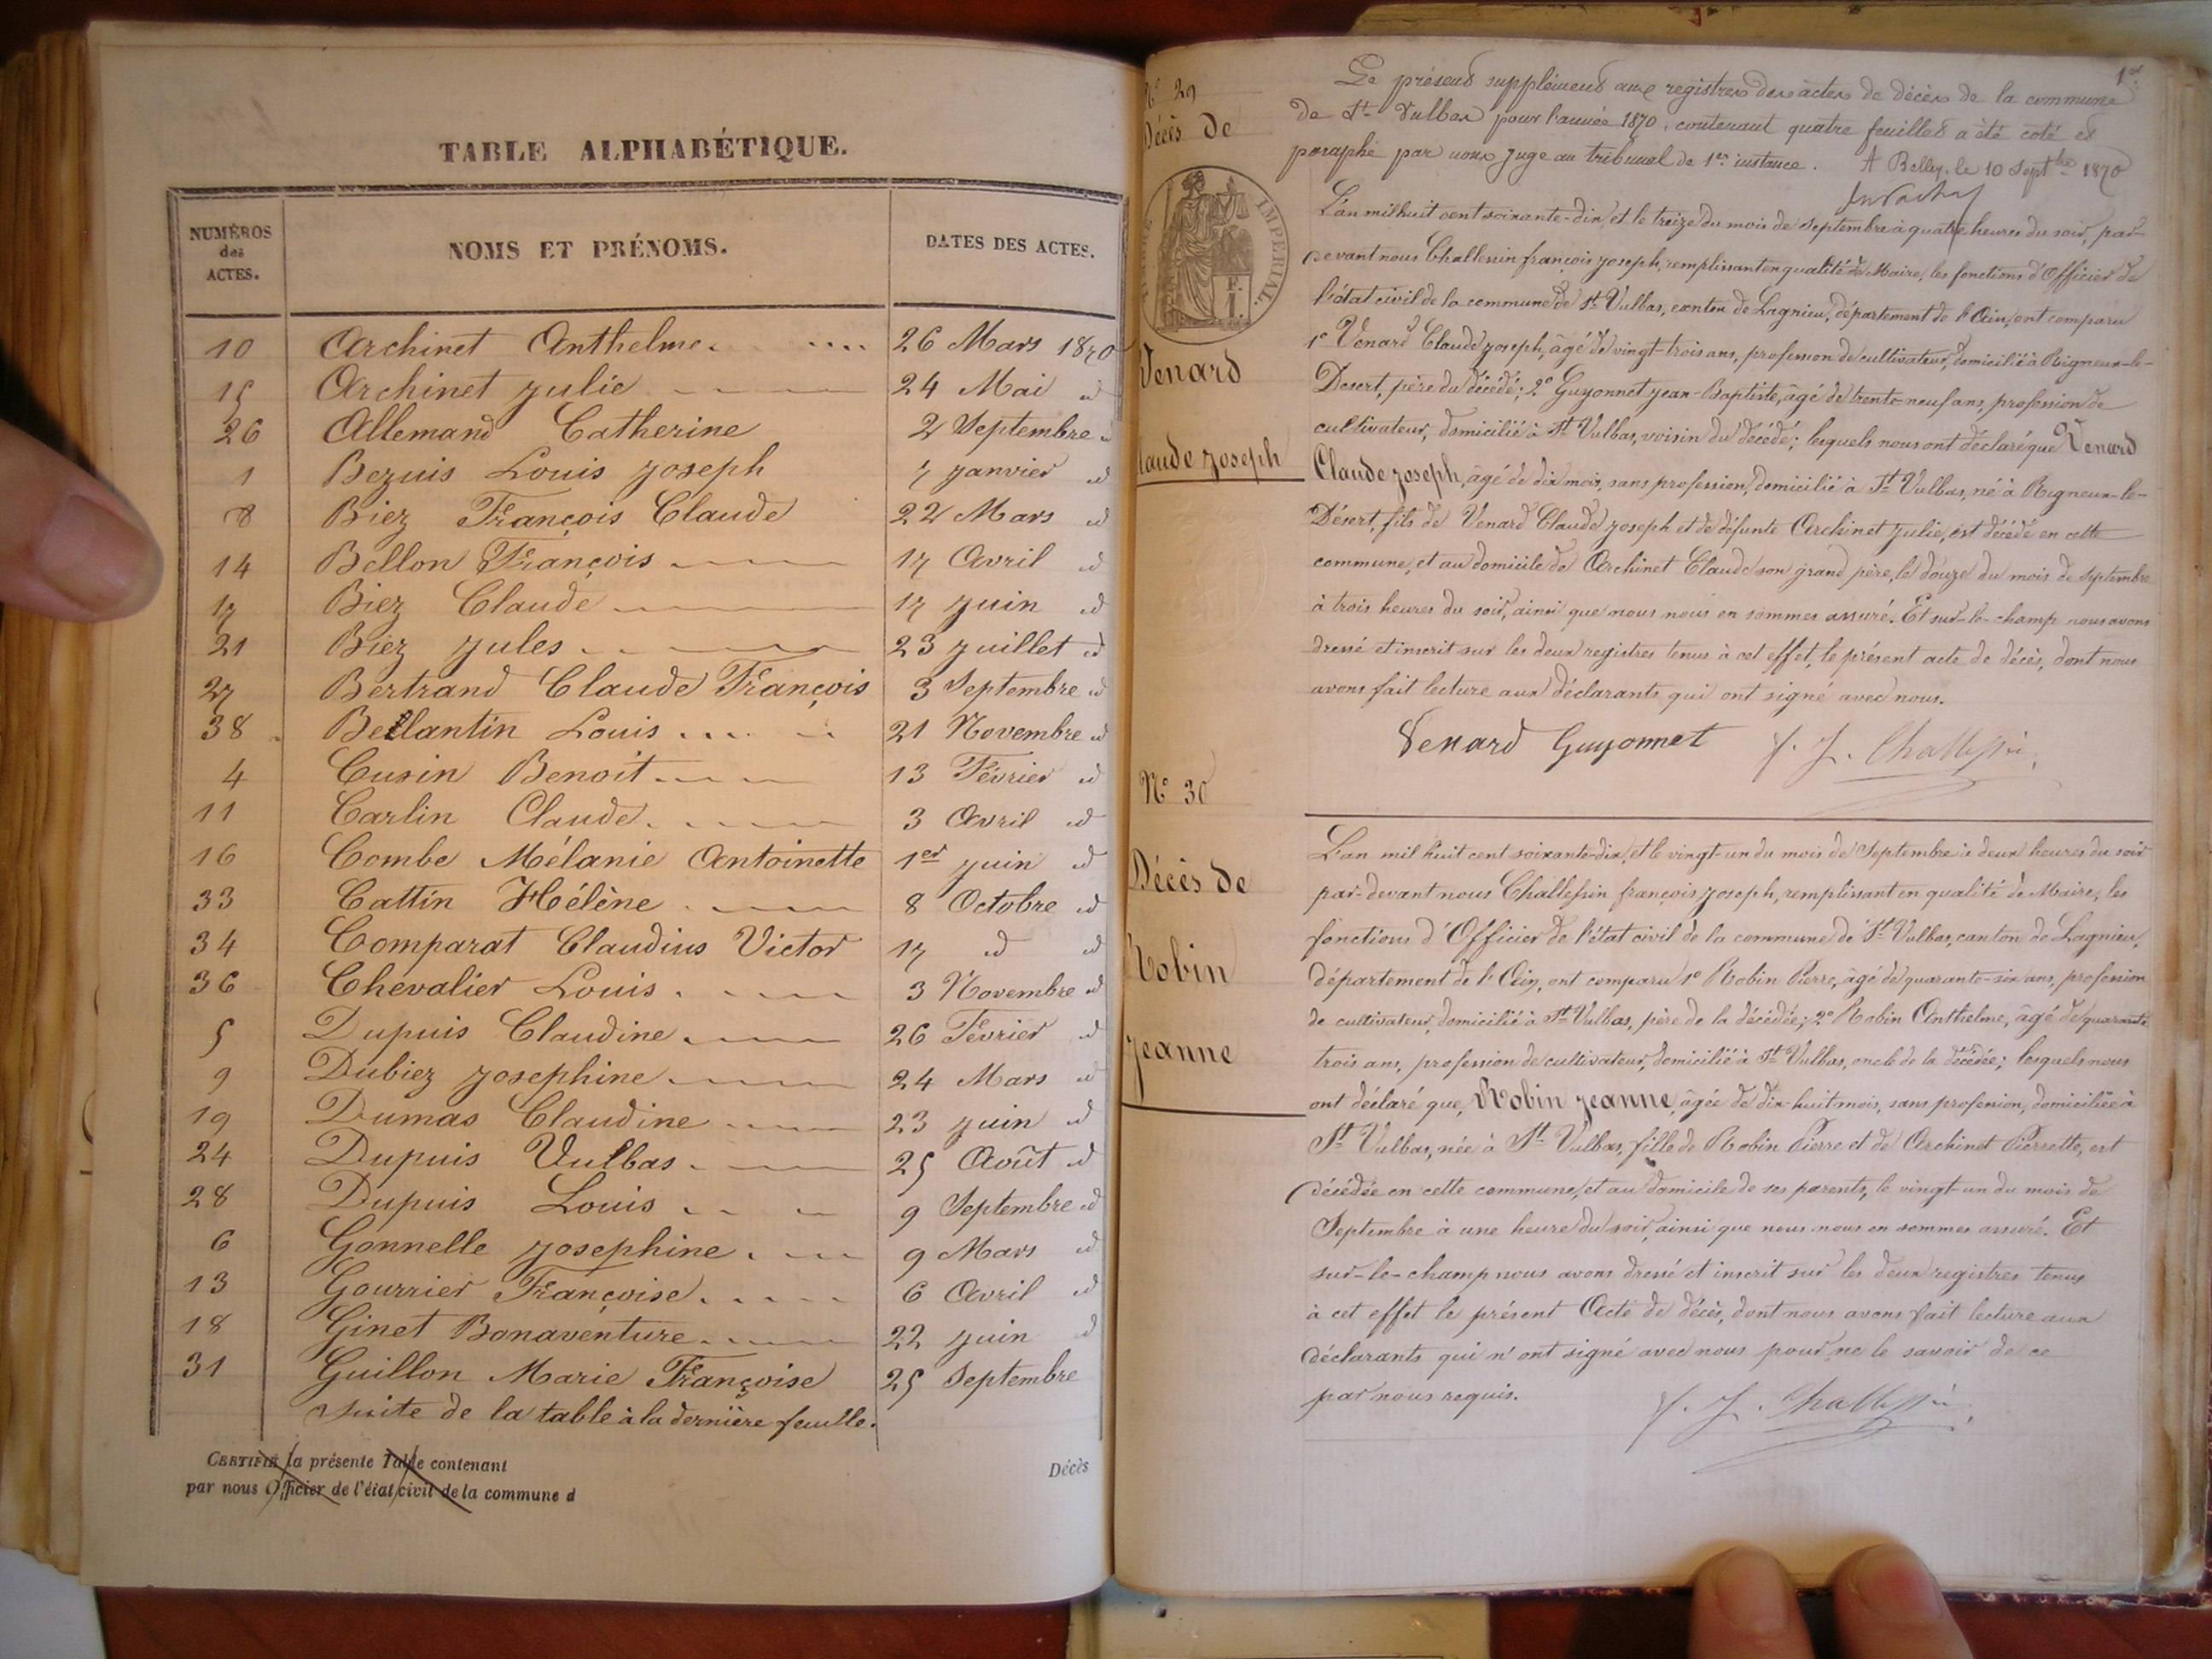 TABLE ALPHABÉTIQUE.
NUMÉROS des ACTES.
NOMS ET PRÉNOMS.
DATES DES ACTES.
10 Archinet Anthelme 26 Mars 1870
15 Archinet Julie 24 Mai id
26 Allemand Catherine 2 Septembre id
1 Bezuis Louis Joseph 7 Janvier id
8 Biez François Claude 22 Mars id
14 Bellon François 17 Avril id
17 Biez Claude 17 Juin id
21 Biez Jules 23 Juillet id
27 Bertrand Claude François 3 Septembre id
38 Bellantin Louis 21 Novembre id
4 Cusin Benoit 13 Février id
11 Carlin Claude 3 Avril id
16 Combe Mélanie Antoinette 1er Juin id
33 Cattin Hélène 8 Octobre id
34 Comparat Claudius Victor 17 d id
36 Chevalier Louis 3 Novembre id
5 Dupuis Claudine 26 Février id
9 Dubiez Josephine 24 Mars id
19 Dumas Claudine 23 Juin id
24 Dupuis Vulbas 25 Août id
28 Dupuis Louis 9 Septembre id
6 Gonnelle Josephine 9 Mars id
13 Gourrier Françoise 6 Avril id
18 Ginet Bonaventure 22 Juin d
31 Guillon Marie Françoise 25 Septembre
Suite de la table à la dernière feuille.
CERTIFIÉ la présente Table contenant
par nous Officier de l'état civil de la commune d
Décès
1er
Le présent supplément aux registres des actes de décès de la commune
de St Vulbas pour l'année 1870, contenant quatre feuillets a été coté et
paraphé par nous Juge au tribunal de 1ère instance. A Belley, le 10 Septbre 1870
N° 29
Décès de
IMPÉRIAL.
F. I.
Venard
Claude Joseph
L'an mil huit cent soixante-dix, et le treize du mois de Septembre à quatre heures du soir, par-
devant nous Challessin françois Joseph, remplissant en qualité de Maire, les fonctions d'Officier de
l'état civil de la commune de St Vulbas, canton de Lagnieu, département de l'Ain, ont comparu
1° Venard Claude Joseph, âgé de vingt-trois ans, profession de cultivateur, domicilié à Rigneux-le-
Desert, père du décédé; 2° Guyonnet Jean-Baptiste, âgé de trente-neuf ans, profession de
cultivateur, domicilié à St Vulbas, voisin du décédé; lesquels nous ont déclaré que Venard
Claude Joseph, âgé de dix mois, sans profession, domicilié à St Vulbas, né à Rigneux-le-
Désert, fils de Venard Claude Joseph et de défunte Archinet Julie, est décédé en cette
commune, et au domicile de Archinet Claude son grand père, le douze du mois de Septembre
à trois heures du soir, ainsi que nous nous en sommes assuré. Et sur-le-champ nous avons
dressé et inscrit sur les deux registres tenus à cet effet, le présent acte de décès, dont nous
avons fait lecture aux déclarants qui ont signé avec nous.
Venard Guyonnet f. J. Challessin
N° 30
Décès de
Robin
Jeanne
L'an mil huit cent soixante-dix, et le vingt-un du mois de Septembre à deux heures du soir
par-devant nous Challessin françois Joseph, remplissant en qualité de Maire, les
fonctions d'Officier de l'état civil de la commune de St Vulbas, canton de Lagnieu,
département de l'Ain, ont comparu 1° Robin Pierre, âgé de quarante-six ans, profession
de cultivateur, domicilié à St Vulbas, père de la décédée; 2° Robin Anthelme, âgé de quarante
trois ans, profession de cultivateur, domicilié à St Vulbas, oncle de la décédée; lesquels nous
ont déclaré que, Robin Jeanne, âgée de dix-huit mois, sans profession, domiciliée à
St Vulbas, née à St Vulbas, fille de Robin Pierre et de Archinet Pierrette, est
décédée en cette commune, et au domicile de ses parents, le vingt-un du mois de
Septembre à une heure du soir, ainsi que nous nous en sommes assuré. Et
sur-le-champ nous avons dressé et inscrit sur les deux registres tenus
à cet effet le présent Acte de décès, dont nous avons fait lecture aux
déclarants qui n'ont signé avec nous pour ne le savoir de ce
par nous requis.
f. J. Challessin